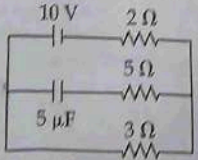 10 V 2 Ω
5 Ω
5 μF
3 Ω